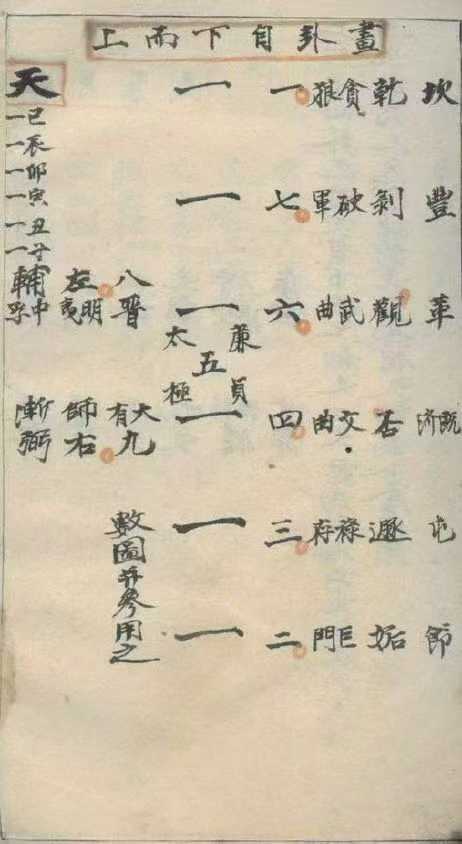 畫卦自下而上
坎 豐 革 既濟 屯 節
乾 剝 觀 否 遯 姤
貪狼 破軍 武曲 文曲 祿存 巨門
一 七 六 四 三 二
廉貞
五
太極
一 一 一 一 一 一
八晉 大有九
數圖并參用之
左明夷 師右
天
一巳
一辰
一卯
一寅
一丑
一子
輔中孚 漸弼